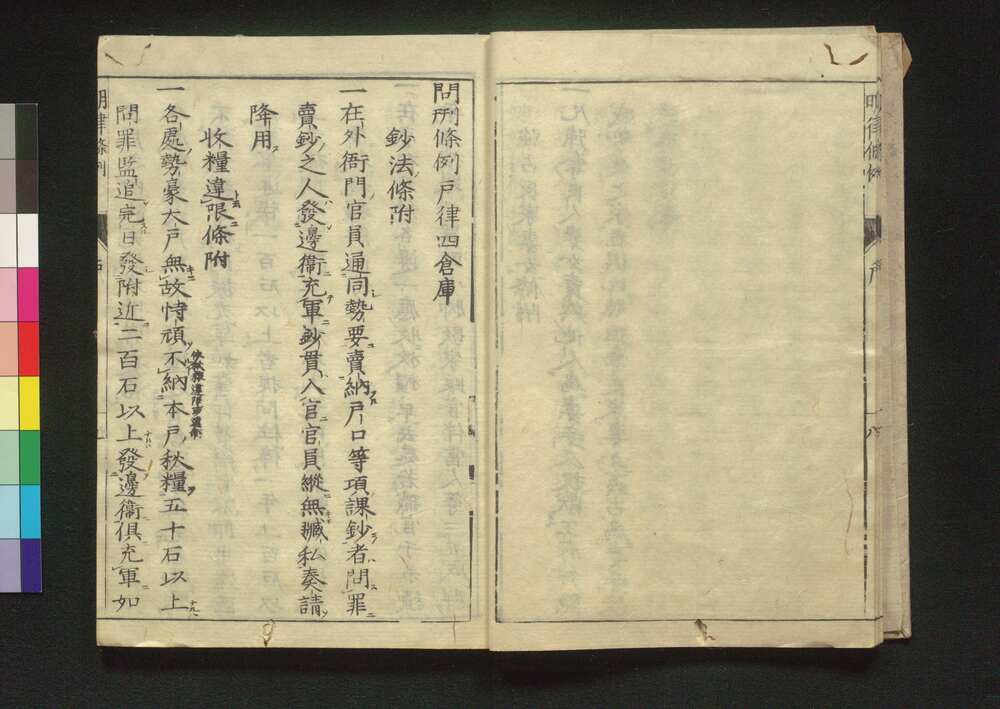 問刑條例戸律四倉庫
鈔法條附
一在外衙門官員通同勢要賣納戸口等項課鈔者問罪
賣鈔之人發邊衞充軍鈔貫入官官員縱無贓私奏請
降用
收糧違限條附
一各處勢豪大戸無故恃頑不納本戸秋糧五十石以上
問罪監追完日發附近二百石以上發邊衞俱充軍如
明律條例
戸